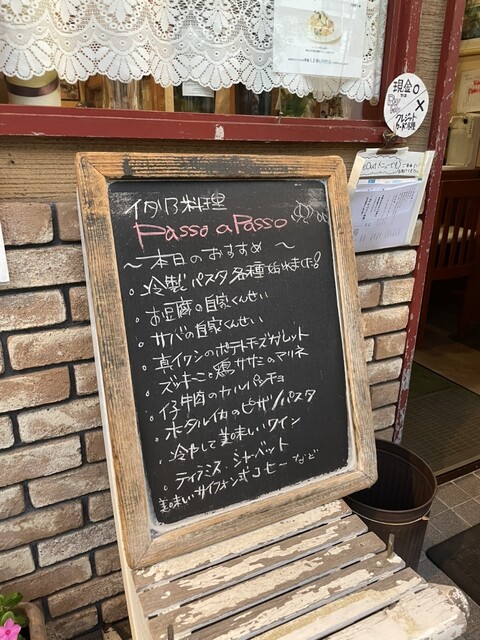 イタリア料理
Passo a Passo
～本日のおすすめ～
・冷製パスタ各種始めました!
・お豆腐の自家くんせい
・サバの自家くんせい
・真イワシのポテトチーズガレット
・ズッキーニと鶏ササミのマリネ
・仔牛肉のカルパッチョ
・ホタルイカのピザ/パスタ
・冷やして美味しいワイン
・ティラミス・シャーベット
美味しいサイフォン式コーヒーなど
現金○
クレジットカード ×